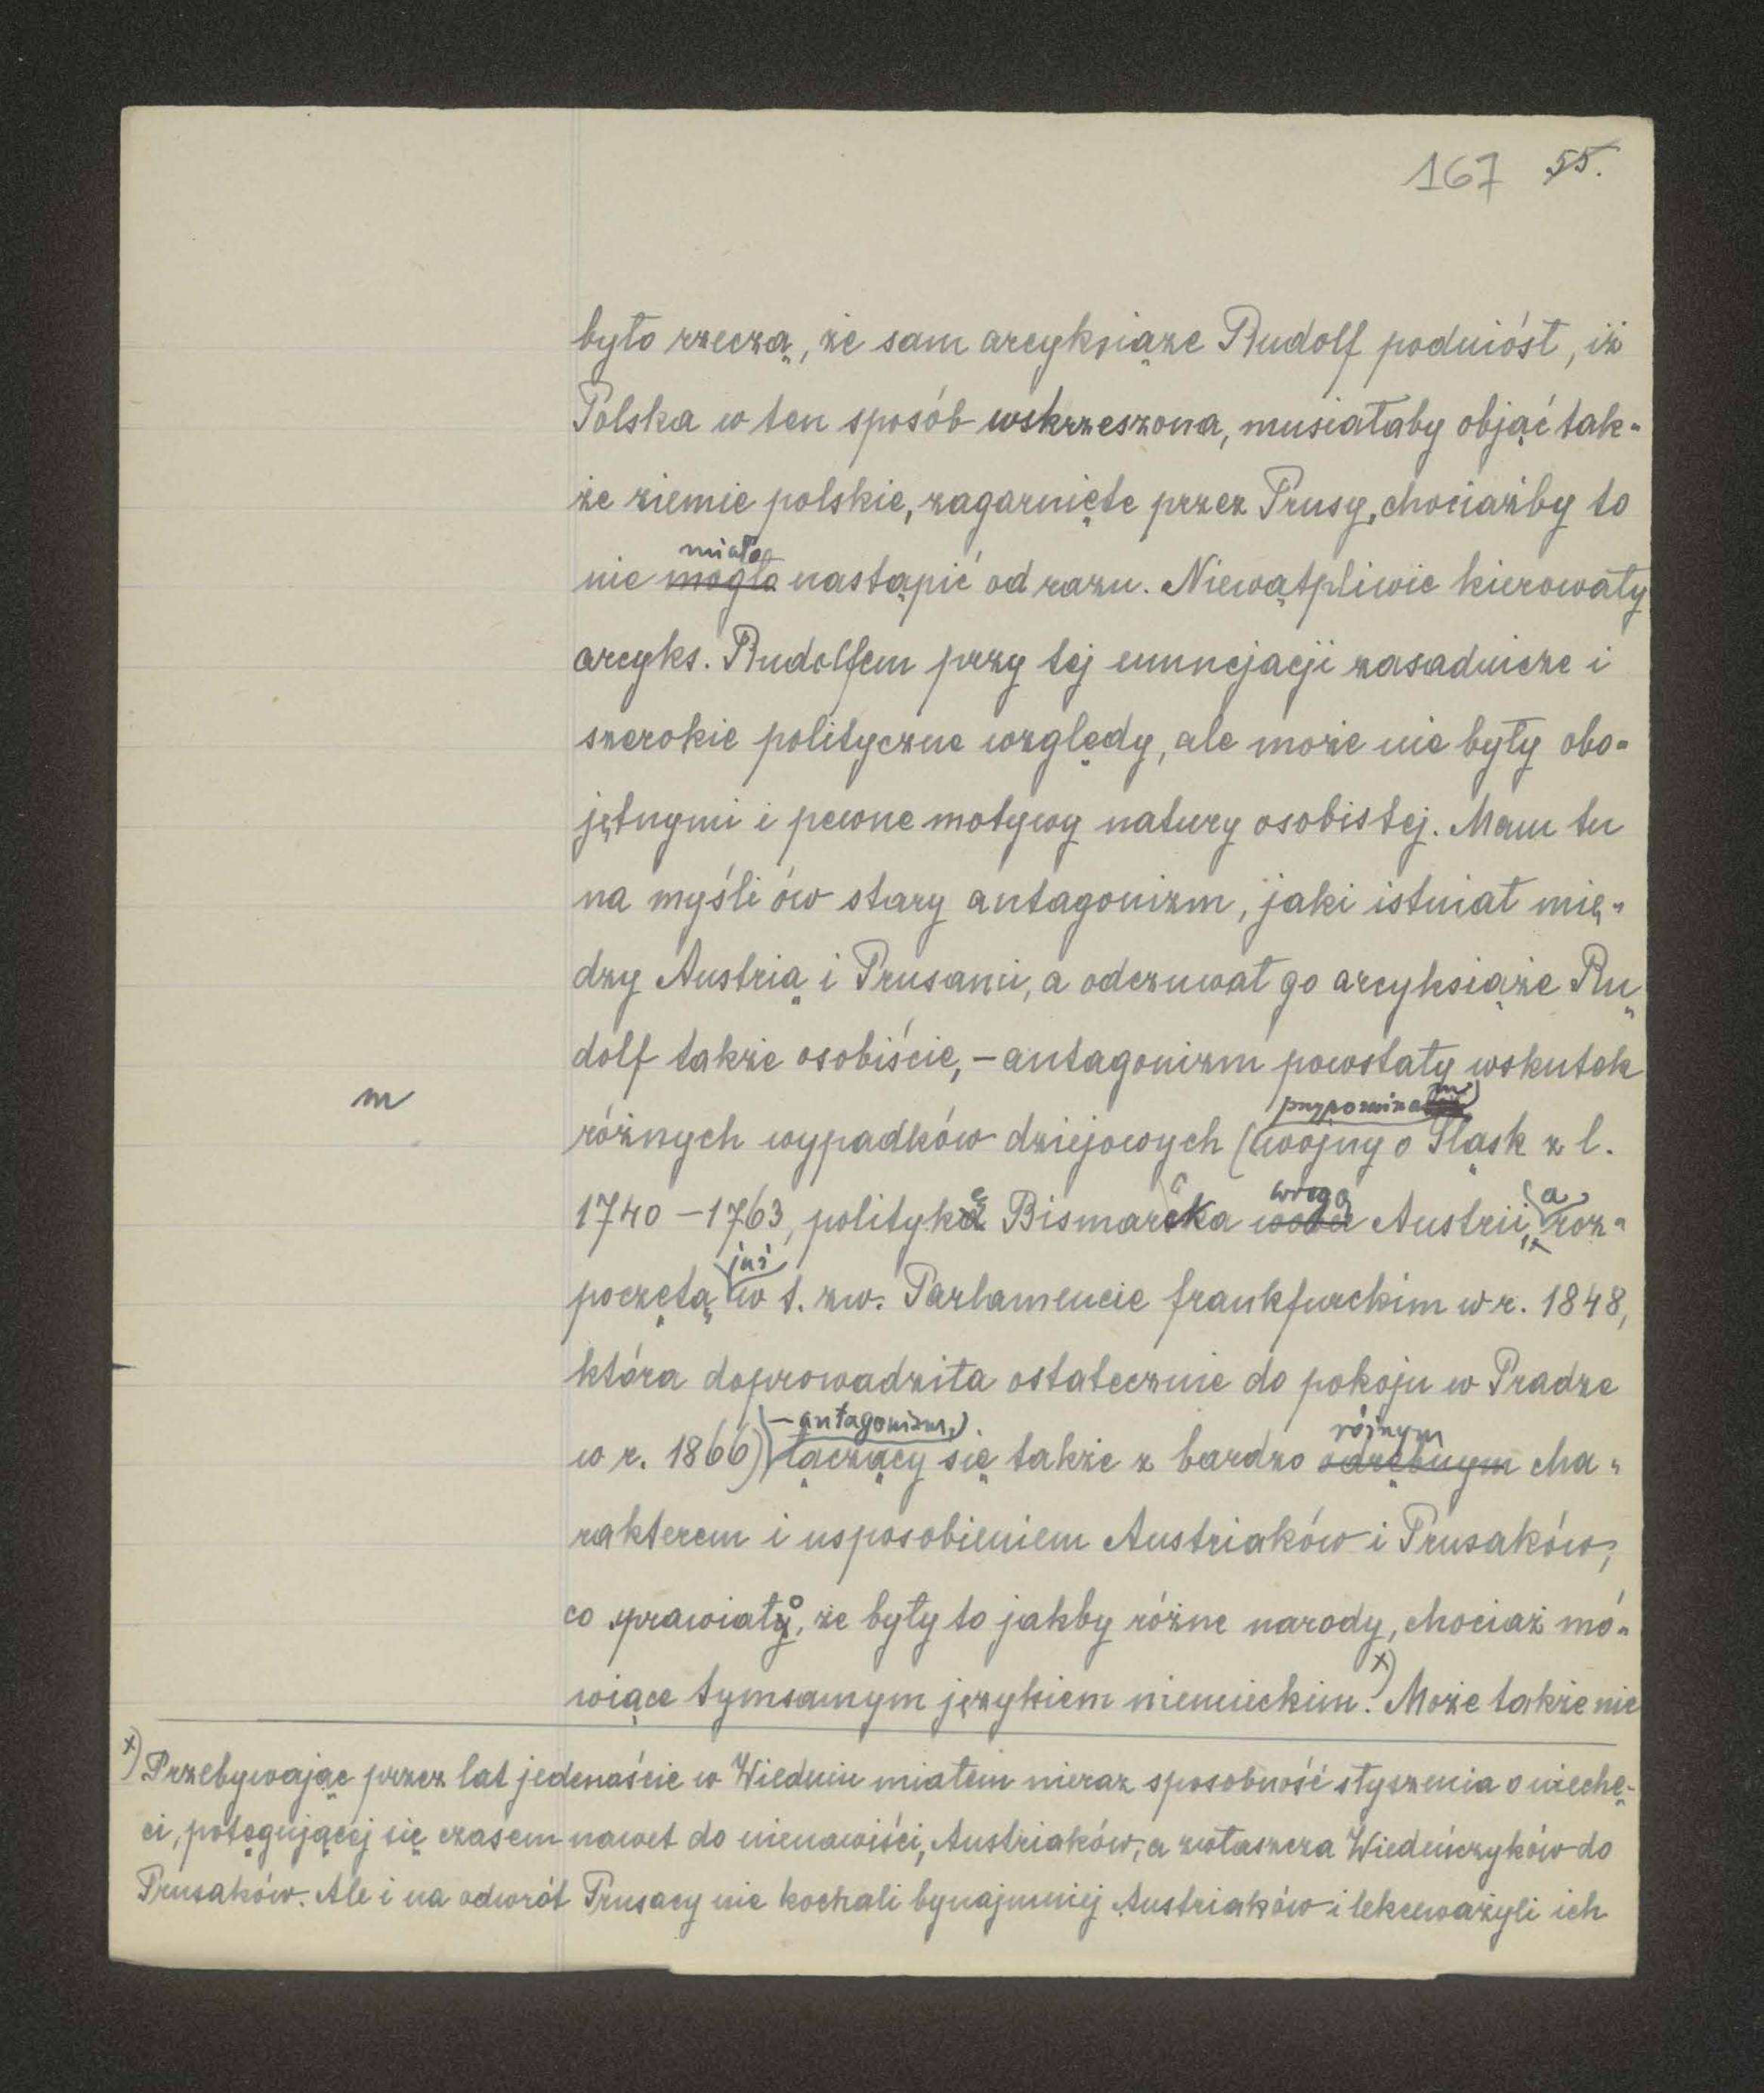 167 55.
było rzeczą, że sam arcyksiąże Rudolf podniósł, iż
Polska w ten sposób wskrzeszona, musiałaby objąć tak-
że ziemie polskie, zagarnięte przez Prusy, chociażby to
miało
nie mogło nastąpić od razu. Niewątpliwie kierowały
arcyks. Rudolfem przy tej enuncjacji zasadnicze i
szerokie polityczne względy, ale może nie były obo-
jętnymi i pewne motywy natury osobistej. Mam tu
na myśli ów stary antagonizm, jaki istniał mię-
dzy Austrią i Prusami, a odczuwał go arcyksiąże Ru-
dolf także osobiście, – antagonizm powstały wskutek
m
przypominam
różnych wypadków dziejowych (wojny o Śląsk z l.
wrogą a
1740 – 1763, politykę Bismarcka wobec Austrii, roz-
już
poczętą w t. zw. Parlamencie frankfurckim w r. 1848,
która doprowadziła ostatecznie do pokoju w Pradze
– antagonizm, różnym
w r. 1866) łączący się także z bardzo odrębnym cha-
rakterem i usposobieniem Austriaków i Prusaków,
co sprawiało, że były to jakby różne narody, chociaż mó-
wiące tymsamym językiem niemieckim. x) Może także nie
x) Przebywając przez lat jedenaście w Wiedniu miałem nieraz sposobność słyszenia o niechę-
ci, potęgującej się czasem nawet do nienawiści, Austriaków, a zwłaszcza Wiedeńczyków do
Prusaków. Ale i na odwrót Prusacy nie kochali bynajmniej Austriaków i lekceważyli ich